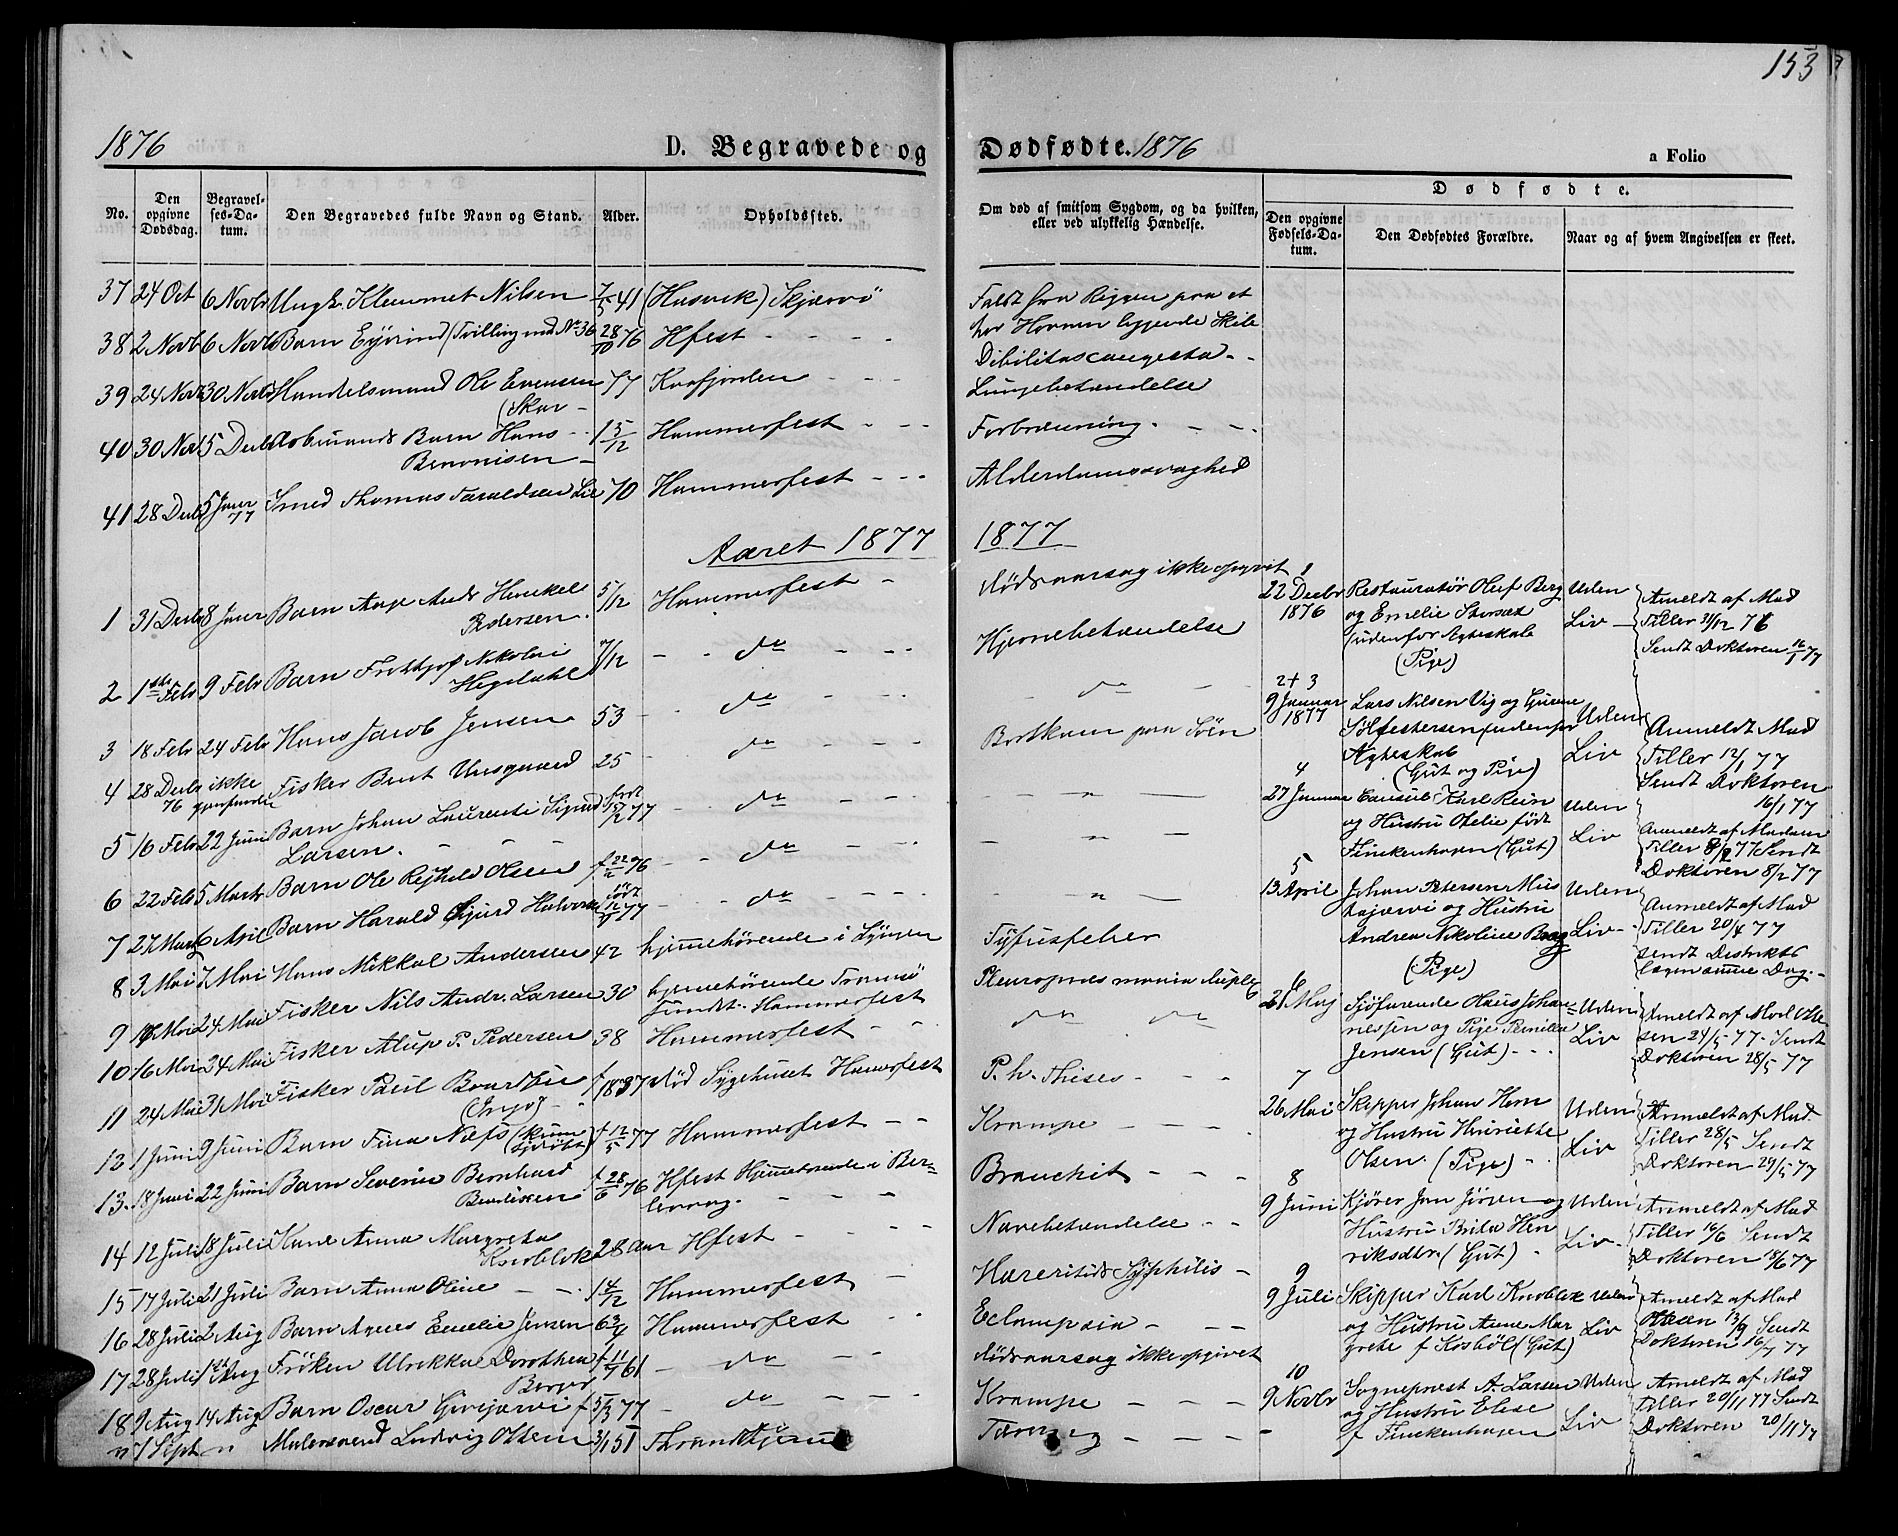 153
1876
D. Begravede og
Dødfødte. 1876
a Folio
No.
Den opgivne Dødsdag.
Begravelses-Datum.
Den Begravedes fulde Navn og Stand.
Alder.
Opholdssted.
Om død af smitsom Sygdom, og da hvilken,
eller ved ulykkelig Hændelse.
Dødfødte.
Den opgivne Fødsels-Datum.
Den Dødfødtes Forældre.
Naar og af hvem Angivelsen er skeet.
37 24 Oct 6 Novbr Ungk. Klemmet Nilsen 7/5 41 (Husvik) Skjærvö
38 2 Novb 6 Novb Barn Eyvind (Tvilling med No 36 28/10 76 Hfest
39 24 Novb 30 Novb Handelsmand Ole Evensen 77 Kvafjorden
(Skar
40 30 Nov 5 Decb Arbmands Barn Hans 1 5/12 Hammerfest
Benonisen
41 28 Decb 5 Janr 77 Smed Thomas Taraldsen Lie 70 Hammerfest
Aaret 1877
1 31 Decb 8 Janr Barn Aage Andr Henckel 5/12 Hammerfest
Pedersen
2 1ste Febr 9 Febr Barn Frithjof Nikolai 7/12 do
Hegdahl
3 18 Febr 24 Febr Hans Jacob Jensen 53 do
4 28 Decb 76 ikke gjenfunden Fisker Bent Unsgaard 25 do
5 16 Febr 22 Juni Barn Johan Laurents Sigurd født 15/2 77 do
Larsen
6 22 Feb 5 Marts Barn Ole Olsen f 22/11 76 do
7 27 Marts 6 April Barn Harald Sjurd Halvorsen født 77 do
8 3 Mai 7 Mai Hans Mikkal Andersen 42 hjemmehørende i Lyngen
9 Mai 24 Mai Fisker Nils Andr. Larsen 30 hjemehørende Tromsö
Sundt. Hammerfest
10 16 Mai 24 Mai Fisker Alup P. Pedersen 38 Hammerfest
11 24 Mai 31 Mai Fisker Paul f 1837 död Sygehuset Hamerfest
12 1 Juni 9 Juni Barn Fina Næss f 12/5 77 Hammerfest
13. 18 Juni 22 Juni Barn Severin Bernhard f 28/6 76 Hfest Hjemehörende i Ber=
Bendixen levaag.
14 12 Juli 18 Juli Kone Anna Margreta 28 Aar Hfest
Knoblok
15 17 Juli 21 Juli Barn Anna Oline 1 4/12 Hammerfest
16 28 Juli 2 Aug Barn Agnes Emelie Jensen 6 3/4 Hammerfest
17 28 Juli 1ste Aug Fröken Ulrikka Dorothea f 11/7 61 do
Berger
18 9 Aug 14 Aug Barn Oscar f 5/3 77 do
n 7 Sept n Malersvend Ludvig Olsen 3/1 51 Throndhjem
Faldt fra Riggen paa et
her Havnen liggende Skib
Lungebetændelse
Forbrænning
Alderdomssvaghed
1877
Dödsaarsag ikke opgivet
Hjernebetændelse
do
Bortkom paa Söen
Tyfusfeber
do do
P. h. Thises
Krampe
Bronchit
Navebetændelse
Syphilis
Eclampsia
Dödsaarsag ikke opgivet
Krampe
Tæring
1
22 Decbr 1876 Restauratør Oluf Berg Uden Anmeldt af Mad
og Emelie Storsæt Liv Tiller 31/12 76
(udenfor Ægteskab Sendt Doktoren 16/1 77
(Pige)
2 + 3
9 Januar 1877 Lars Nilsen Vig og Gurine Uden Anmeldt Mad
Silfestersen (udenfor Liv Tiller 12/1 77
Ægteskab Sendt Doktoren
(Gut og Pige) 16/1 77
4
27 Januar Consul Karl Rein Uden Anmeldt af Madam
og Hustru Otelie født Liv Tiller 8/2 77 Sendt
Finckenhagen (Gut) Doktoren 8/2 77
5
13 April Johan Petersen Mus Uden Anmeldt af Mad
tajærvi og Hustru Liv Tiller 20/4 77
Andrea Nikoline Berg sendt Distrikts
(Pige) lægen samme Dag.
6
21 Maj Sjöfarende Hans Johan= Uden Anmeldt af Mad Ol=
nessen og Pige Pernilla Liv sen 24/5 77. Sendt
Jensen (Gut) Doktoren 28/5 77
7
26 Mai Skipper Johan Horn Uden Anmeldt af Mad
og Hustru Henriette Liv Tiller 28/5 Sendt
Olsen. (Pige) Doktoren 29/5 77
8
9 Juni Kjörer Jan Jörgen og Uden Anmeldt af Mad
Hustru Brita Hen Liv Tiller 16/6 Sendt
riksdtr. (Gut) Doktoren 18/6 77
9
9 Juli Skipper Karl Knoblok Uden Anmeldt af Mad
og Hustru Anne Mar Liv Olsen 13/9 Sendt
grete f Kosböl (Gut) Doktoren 16/7 77
10
9 Novbr Sogneprest A. Larsen Uden Anmeldt af Mad
og Hustru Elise Liv Tiller 20/11 77 Sendt
f Finckenhagen Doktoren 20/11 77